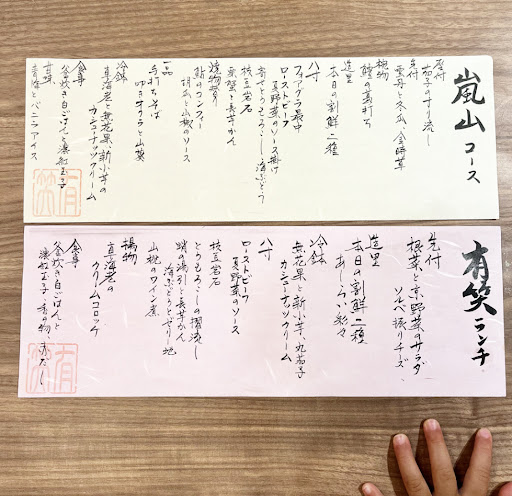 嵐山コース
座付
茄子のすり流し
先付
雲丹と冬瓜、金時草
椀物
鱧の葛打ち
造里
本日の割鮮二種
八寸
フォアグラ最中
ローストビーフ
夏野菜のソース掛け
寄せとうもろこし 海ぶどう
枝豆岩石
栗蟹と長芋かん
焼物替り
鮎のコンフィー
胡瓜と山椒のソース
一品
手打ちそば
叩きオクラと山葵
冷鉢
真海老と無花果、新小芋の
カシューナッツクリーム
食事
釜炊き白ごはんと濃紅玉子
甘味
とバニラアイス
有笑ランチ
先付
根菜と京野菜のサラダ
ソルベ振りチーズ
造里
本日の割鮮二種
あしらい彩々
冷鉢
無花果と新小芋、丸茄子
カシューナッツクリーム
八寸
ローストビーフ
夏野菜のソース
枝豆岩石
とうもろこしの摺流し
蛸の湯引と長芋かん
海ぶどうとゼリー地
山桃のワイン煮
揚物
真海老の
クリームコロッケ
食事
釜炊き白ごはんと
濃紅玉子・香の物・赤だし